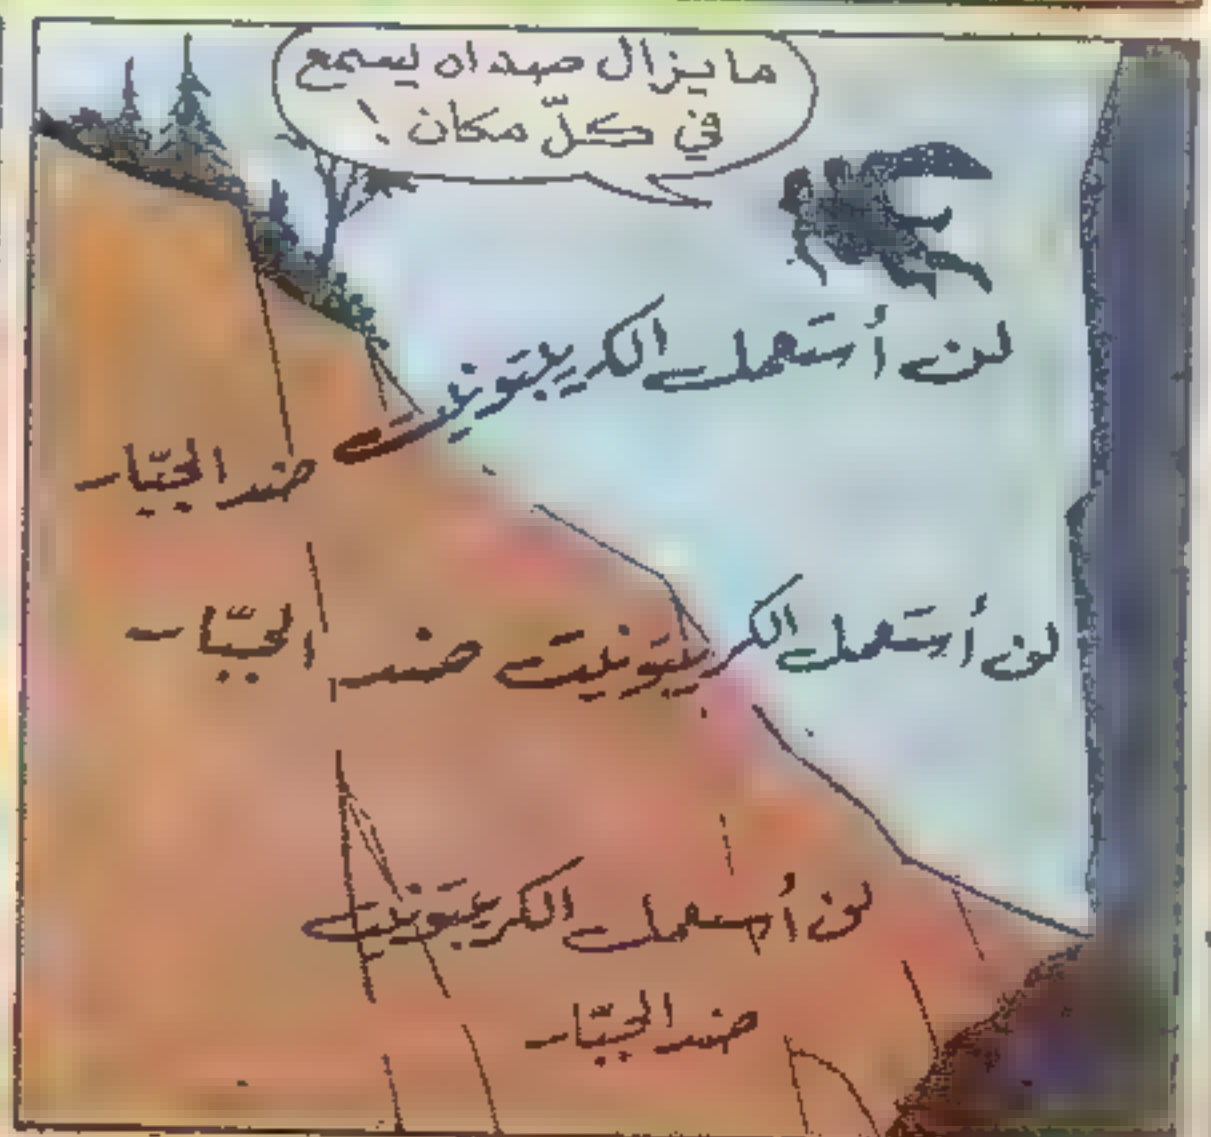 ما يزال صداه يسمع
في كلّ مكان !
لن أستعمل الكريبتونيت
ضد الجبّار
لن أستعمل الكريبتونيت ضد الجبّار
لن أستعمل الكريبتونيت
ضد الجبّار